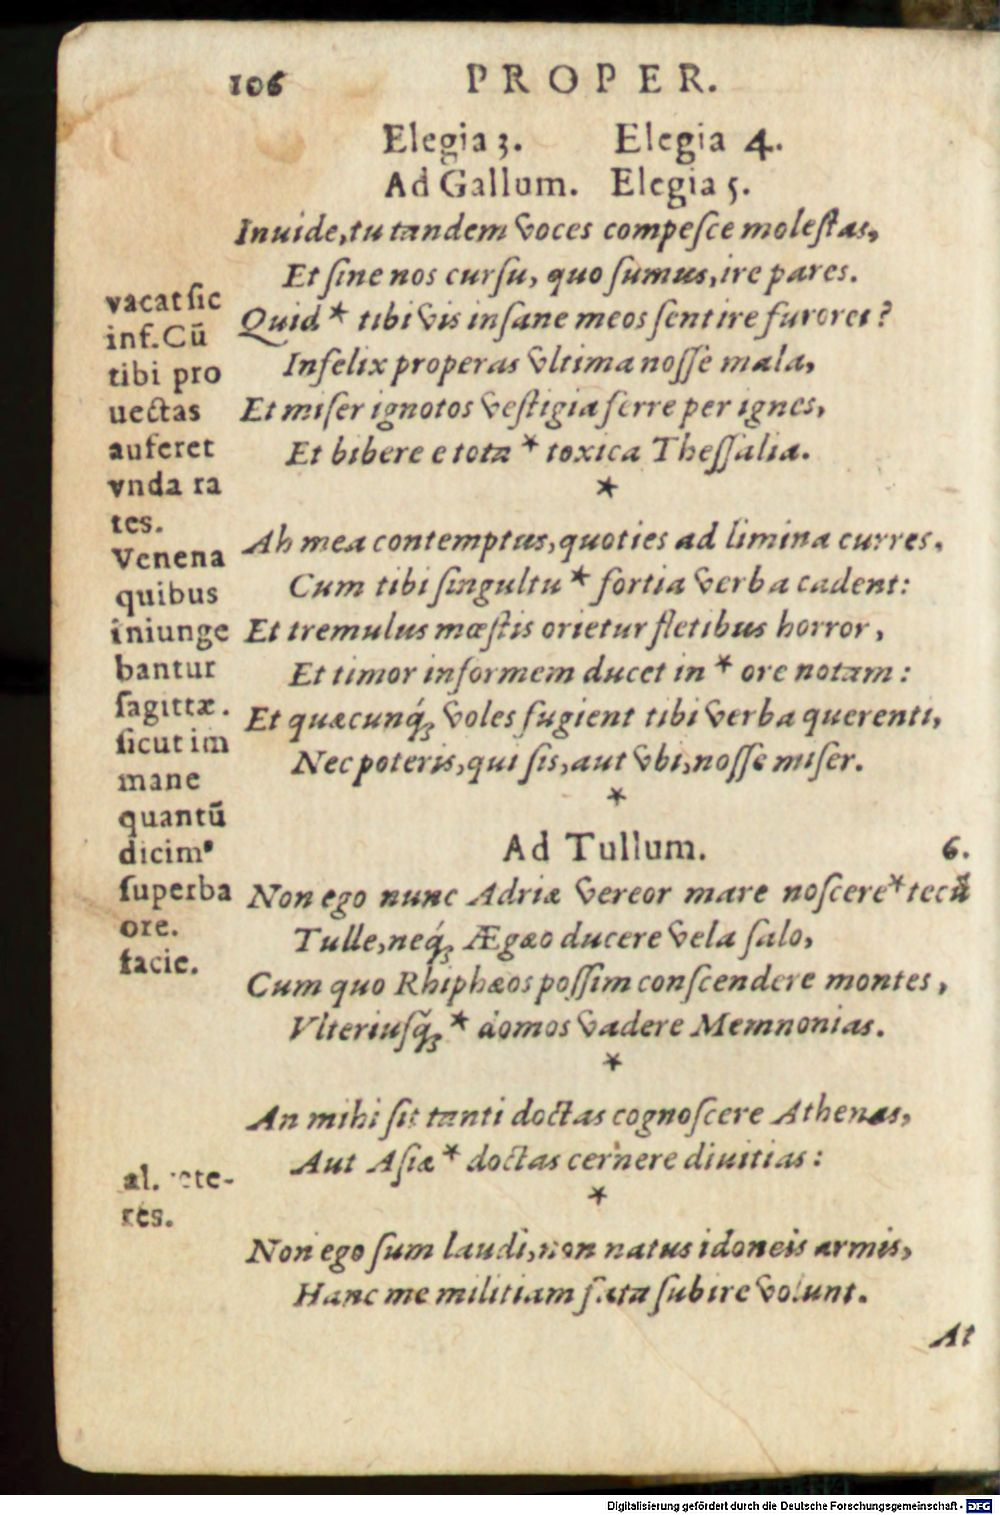 106 PROPER.
Elegia 3. Elegia 4.
Ad Gallum. Elegia 5.
Inuide, tu tandem voces compeſce moleſtas,
Et ſine nos curſu, quo ſumus, ire pares.
Quid * tibi vis inſane meos ſentire furores?
Infelix properas vltima noſſe mala,
Et miſer ignotos veſtigia ferre per ignes,
Et bibere e tota * toxica Theſſalia.
*
Ah mea contemptus, quoties ad limina curres,
Cum tibi ſingultu * fortia verba cadent:
Et tremulus mœſtis orietur fletibus horror,
Et timor informem ducet in * ore notam:
Et quæcunq́ꝫ voles fugient tibi verba querenti,
Nec poteris, qui ſis, aut vbi, noſſe miſer.
*
Ad Tullum. 6.
Non ego nunc Adriæ vereor mare noſcere * tecũ
Tulle, neq́ꝫ Ægæo ducere vela ſalo,
Cum quo Rhiphæos poſſim conſcendere montes,
Vlteriuſq́ꝫ * domos vadere Memnonias.
*
An mihi ſit tanti doctas cognoſcere Athenas,
Aut Aſiæ * doctas cernere diuitias:
*
Non ego ſum laudi, non natus idoneis armis,
Hanc me militiam fata ſubire volunt.
At
vacat ſic
inf. Cũ
tibi pro
uectas
auferet
vnda ra
tes.
Venena
quibus
iniunge
bantur
ſagittæ.
ſicut im
mane
quantũ
dicimꝰ
ſuperba
ore.
facie.
al.
res.
Digitalisierung gefördert durch die Deutsche Forschungsgemeinschaft - DFG